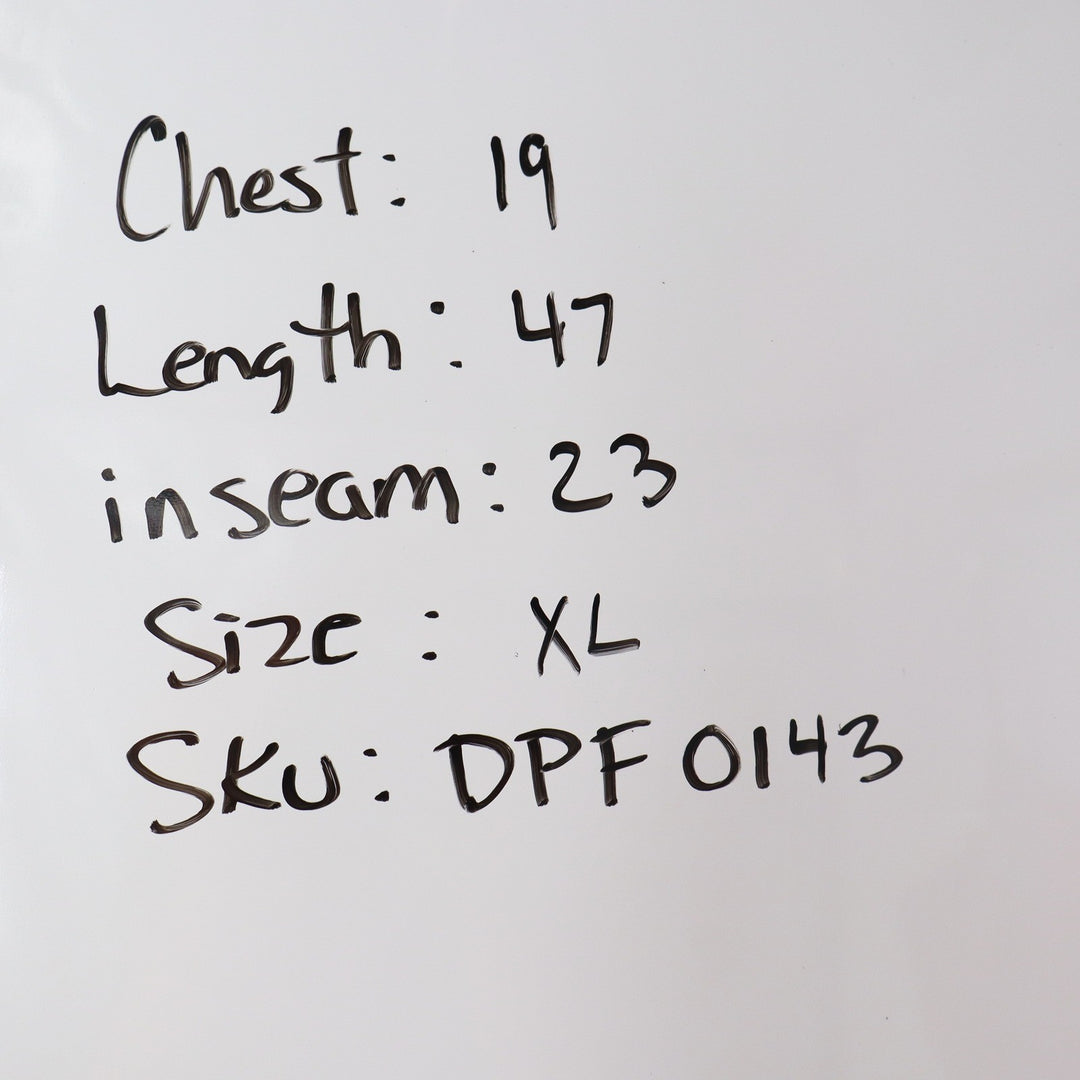 Chest: 19
Length: 47
inseam: 23
Size: XL
SKU: DPF 0143